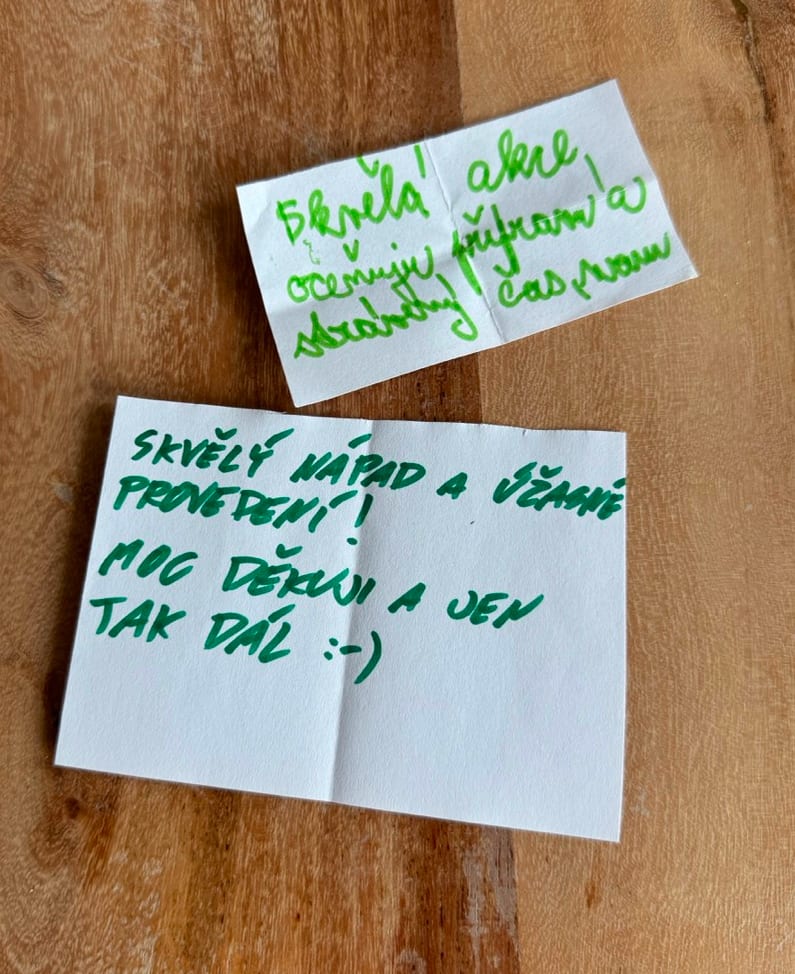 Skvělá akce,
oceňuji přípravu a
strávený čas
SKVĚLÝ NÁPAD A ÚŽASNÉ
PROVEDENÍ!
MOC DĚKUJI A JEN
TAK DÁL :-)